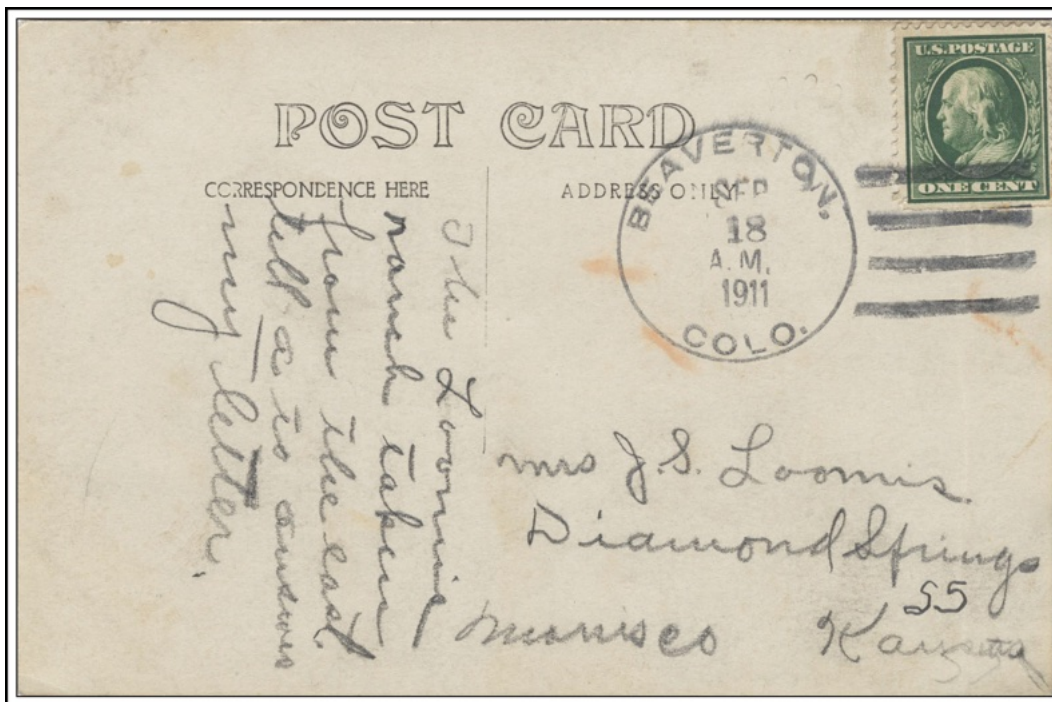 U.S. POSTAGE
ONE CENT
POST CARD
CORRESPONDENCE HERE
ADDRESS ONLY
BEAVERTON,
SEP
18
A.M.
1911
COLO.
The Loomis
ranch taken
from the east.
tell a to answer
my letter.
Mrs J. S. Loomis.
Diamond Springs
55
Morris co Kansas